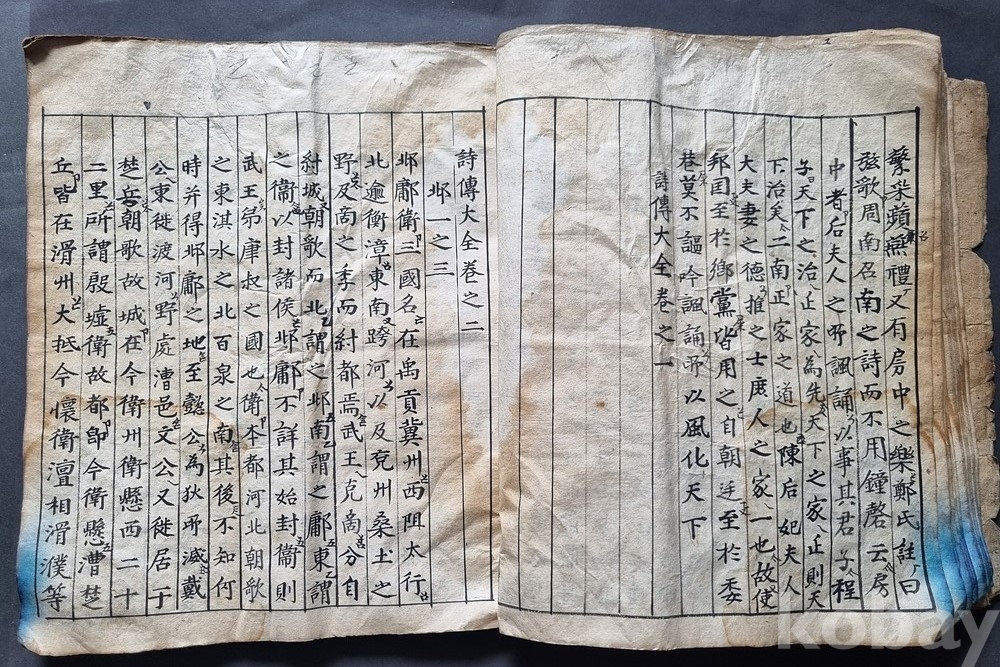 蘩采蘋燕禮又有房中之樂鄭氏註曰
弦歌周南召南之詩而不用鐘磬云房
中者后夫人之所諷誦以事其君子程
子曰天下之治正家為先天下之家正則天
下治矣二南正家之道也陳后妃夫人
大夫妻之德推之士庶人之家一也故使
邦国至於鄉黨皆用之自朝廷至於委
巷莫不謳吟諷誦所以風化天下
詩傳大全卷之一
詩傳大全卷之二
邶一之三
邶鄘衛三國名在禹貢冀州西阻太行
北逾衡漳東南跨河以及兗州桑土之
野及商之季而紂都焉武王克商分自
紂城朝歌而北謂之邶南謂之鄘東謂
之衛以封諸侯邶鄘不詳其始封衛則
武王弟康叔之國也衛本都河北朝歌
之東淇水之北百泉之南其後不知何
時并得邶鄘之地至懿公為狄所滅戴
公東徙渡河野處漕邑文公又徙居于
楚丘朝歌故城在今衛州衛懸西二十
二里所謂殷墟衛故都即今衛懸漕楚
丘皆在滑州大抵今懷衛澶相滑濮等
kobay